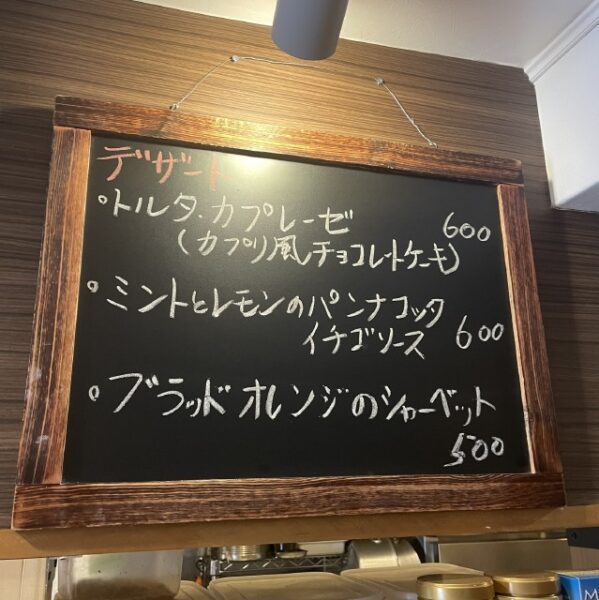 デザート
・トルタ・カプレーゼ 600
(カプリ風チョコレートケーキ)
・ミントとレモンのパンナコッタ
イチゴソース 600
・ブラッドオレンジのシャーベット
500
M